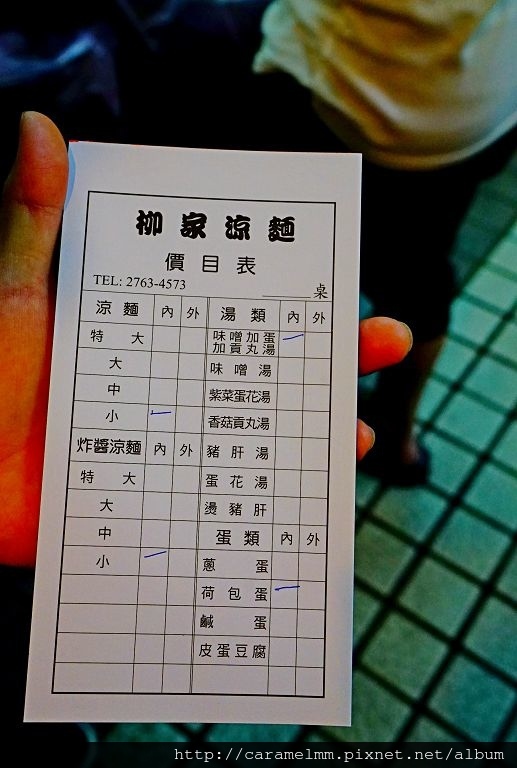 柳家涼麵
價目表
TEL: 2763-4573 ______桌
涼麵 內 外 湯類 內 外
特大 味噌加蛋加貢丸湯
大 味噌湯
中 紫菜蛋花湯
小 香菇貢丸湯
炸醬涼麵 內 外 豬肝湯
特大 蛋花湯
大 燙豬肝
中 蛋類 內 外
小 蔥蛋
荷包蛋
鹹蛋
皮蛋豆腐
http://caramelmm.pixnet.net/album